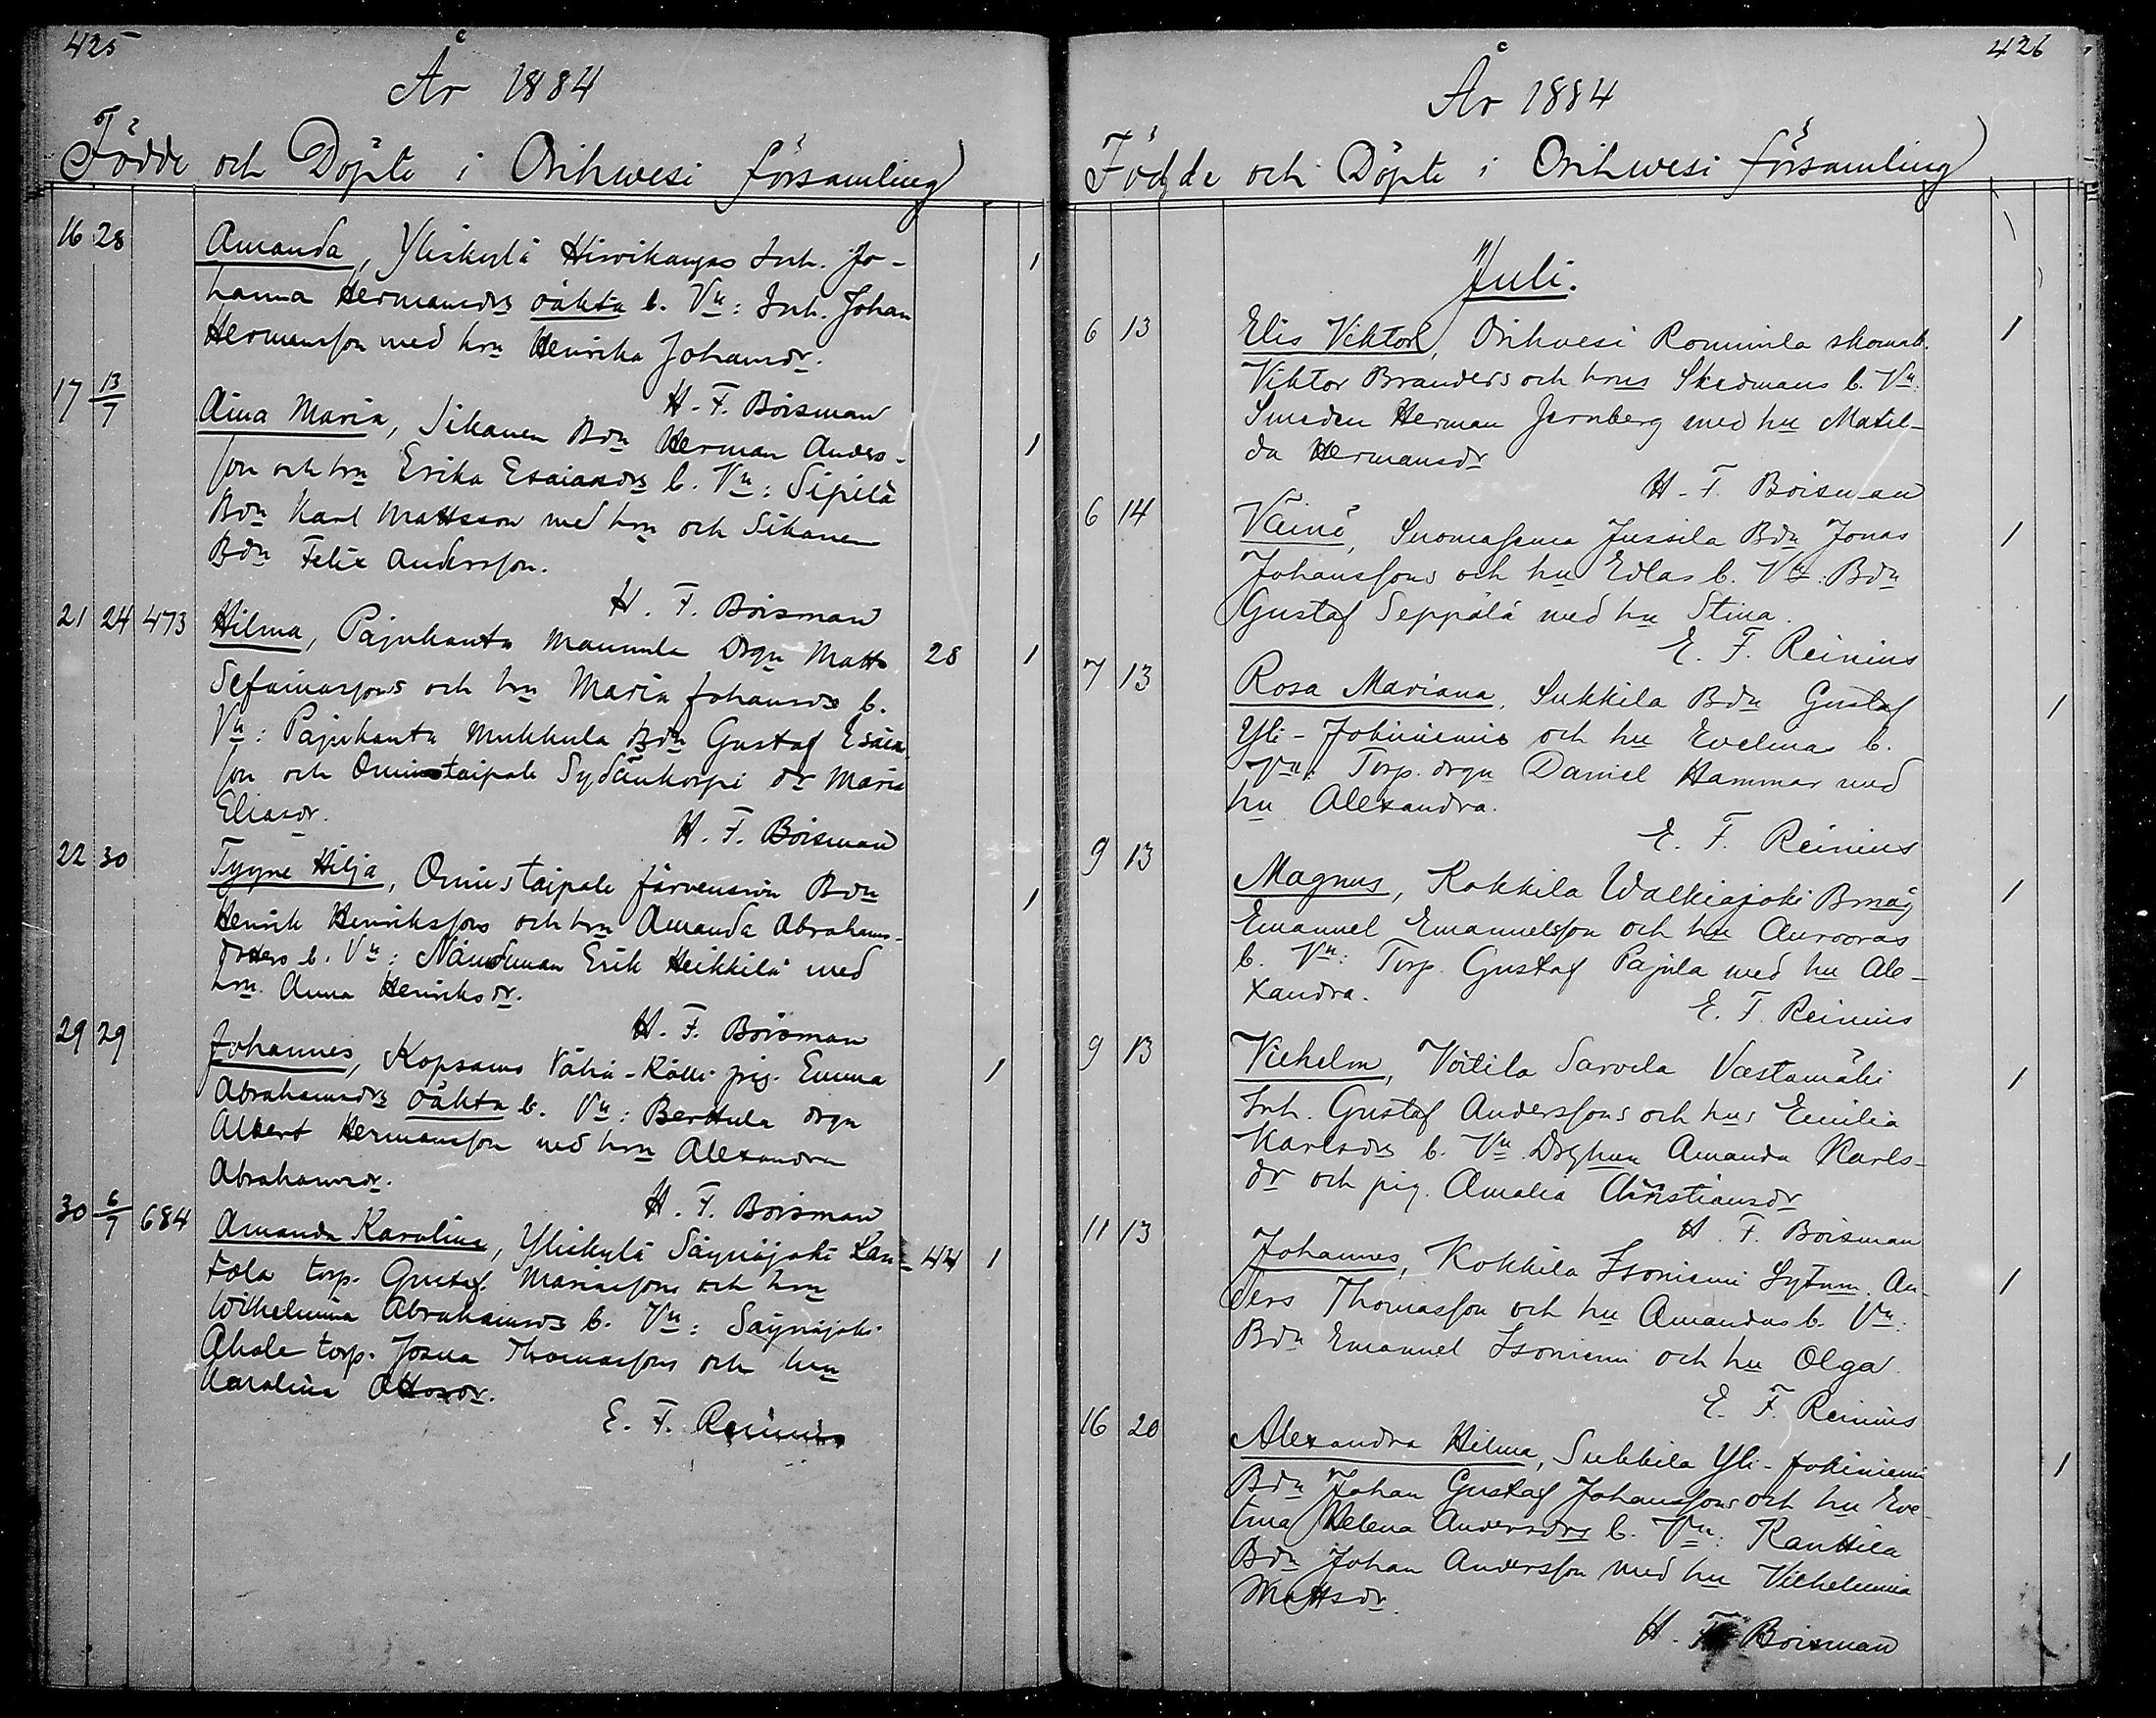 425
År 1884
Födde och Döpte i Orihwesi församling
16 28
Amanda, Yliskylä Hirvikangas Inh. Jo-
hanna Hermansdrs oäkta b. Vn: Inh. Johan
Hermansson med hru Henrika Johansdr.
H. F. Boisman
1
17 13/7
Aina Maria, Sihanen Bdn Herman Anders-
son och hru Erika Esaiasdrs b. Vn: Sipilä
Bdn Karl Mattsson med hru och Sihanen
Bdn Felix Andersson.
H. F. Boisman
1
21 24 473
Hilma, Pajukanta Mannila Drgn Matts
Sefaniassons och hru Maria Johansdrs b.
Vn: Pajukanta Mukkula Bdn Gustaf Esaias
son och Onnistaipale Sydänkorpi dr Maria
Eliasdr.
H. F. Boisman
28 1
22 30
Tyyne Hilja, Onnistaipale Järvensivu Bdn
Henrik Henrikssons och hru Amanda Abrahams-
drs b. Vn: Nämdeman Erik Heikkilä med
hru Anna Henriksdr.
H. F. Boisman
1
29 29
Johannes, Kopsamo Vähä-Rälli pig. Emma
Abrahamsdrs oäkta b. Vn: Berttula drgn
Albert Hermansson med hru Alexandra
Abrahamsdr.
H. F. Boisman
1
30 6/7 684
Amanda Karolina, Yliskylä Säynäjoki
tola torp. Gustaf Mariassons och hru
Wilhelmina Abrahamsdrs b. Vn: Säynäjoki
Ahola torp. Josua Thomassons och hru
Karolina Ottosdr.
E. F. Reinius
44 1
426
År 1884
Födde och Döpte i Orihwesi församling
Juli.
6 13
Elis Viktor, Orihvesi Rommila skomak.
Viktor Branders och hrus Skedmans b. Vn.
Smeden Herman Jernberg med hu Matil-
da Hermansdr
H. F. Boisman
1
6 14
Väinö, Suomasema Jussila Bdn Jonas
Johanssons och hu Edlas b. Vn: Bdn
Gustaf Seppälä med hu Stina.
E. F. Reinius
1
7 13
Rosa Mariana, Sukkila Bdn Gustaf
Yli-Jokiniemis och hu Evelinas b.
Vn: Torp. drgn Daniel Hammar med
hu Alexandra.
E. F. Reinius
1
9 13
Magnus, Kokkila Walkiajoki Bmåg
Emanuel Emanuelsson och hu Auroras
b. Vn: Torp. Gustaf Pajula med hu Ale-
xandra.
E. F. Reinius
1
9 13
Vilhelm, Voitila Sarvela Vastamäki
Inh. Gustaf Anderssons och hus Emilia
Karlsdrs b. Vn Drghun Amanda Karls-
dr och pig. Amalia Christiansdr
H. F. Boisman
1
11 13
Johannes, Kokkila Isoniemi Sytnm. An-
ders Thomasson och hu Amandas b. Vn:
Bdn Emanuel Isoniemi och hu Olga
E. F. Reinius
1
16 20
Alexandra Hilma, Sukkila Yli-Jokiniemi
Bdn Johan Gustaf Johanssons och hu Eve-
lina Helena Andersdrs b. Vn: Kanttila
Bdn Johan Andersson med hu Vilhelmina
Mattsdr.
H. F. Boisman
1